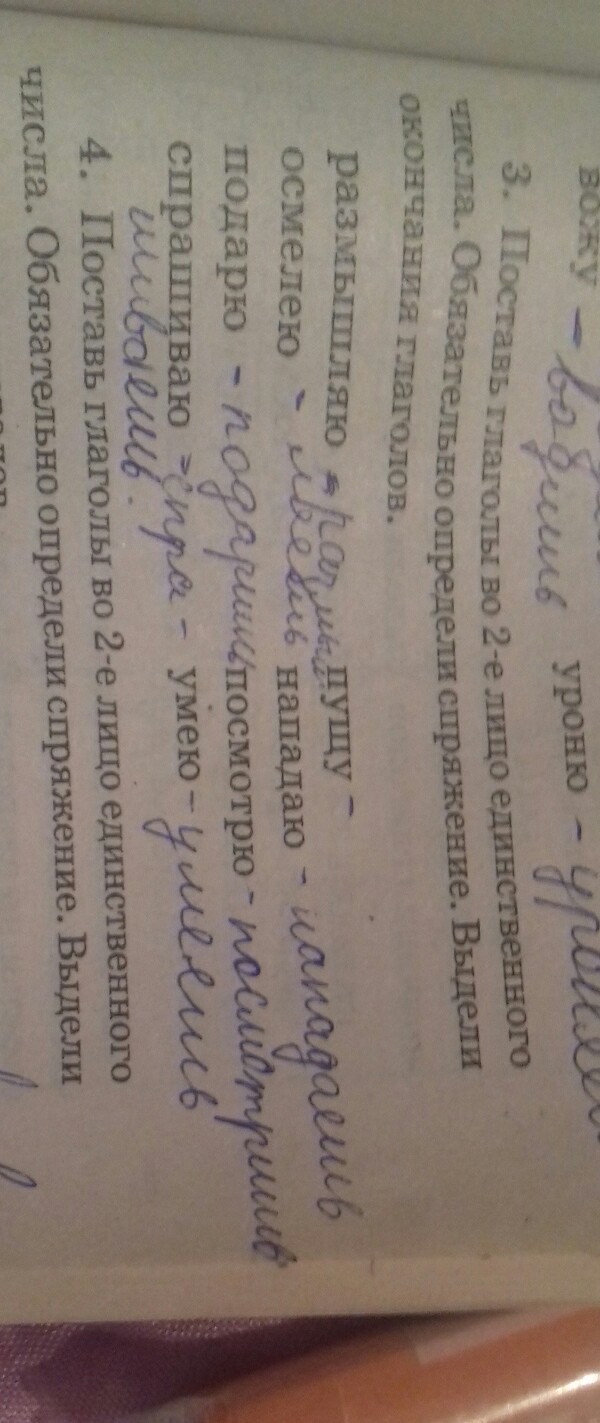 вожу – водишь уроню – уроне
3. Поставь глаголы во 2-е лицо единственного
числа. Обязательно определи спряжение. Выдели
окончания глаголов.
размышляю – пущу –
осмелею – нападаю – нападаешь
подаpю – подаришь посмотрю – посмотришь
спрашиваю – спра – умею – умеешь
шиваешь.
4. Поставь глаголы во 2-е лицо единственного
числа. Обязательно определи спряжение. Выдели